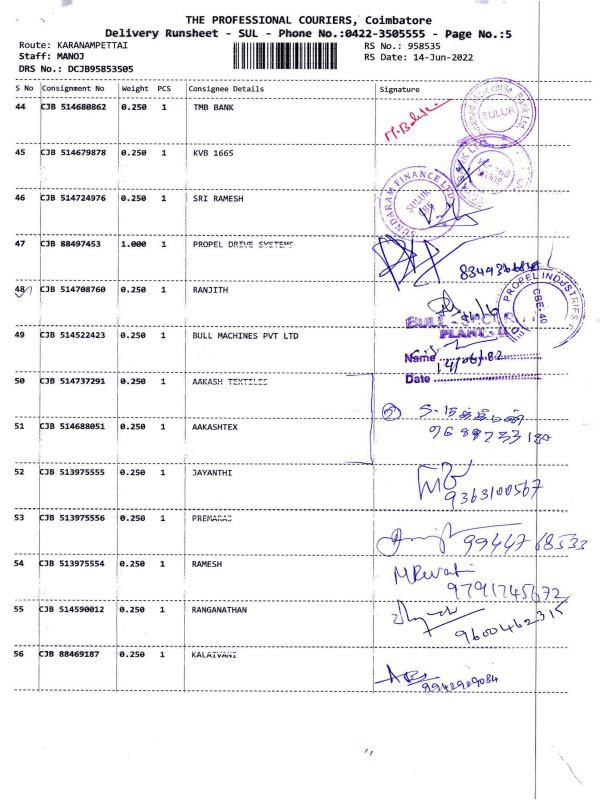 THE PROFESSIONAL COURIERS, Coimbatore
Delivery Runsheet - SUL - Phone No.:0422-3505555 - Page No.:5
Route: KARANAMPETTAI RS No.: 958535
Staff: MANOJ RS Date: 14-Jun-2022
DRS No.: DCJB95853505
S No Consignment No Weight PCS Consignee Details Signature
44 CJB 514680862 0.250 1 TMB BANK
SULUR
45 CJB 514679878 0.250 1 KVB 1665
46 CJB 514724976 0.250 1 SRI RAMESH
SUNDARAM FINANCE LTD
SULUR
47 CJB 88497453 1.000 1 PROPEL DRIVE SYSTEMS
48 CJB 514708760 0.250 1 RANJITH
PROPEL INDUSTRIES
CBE-48
49 CJB 514522423 0.250 1 BULL MACHINES PVT LTD
Name
Date
50 CJB 514737291 0.250 1 AAKASH TEXTILES
51 CJB 514688051 0.250 1 AAKASHTEX
52 CJB 513975555 0.250 1 JAYANTHI
9363100567
53 CJB 513975556 0.250 1 PREMARAJ
99447 68533
54 CJB 513975554 0.250 1 RAMESH
M Revati
9791745672
55 CJB 514590012 0.250 1 RANGANATHAN
9600462315
56 CJB 88469187 0.250 1 KALAIVANI
9942909084